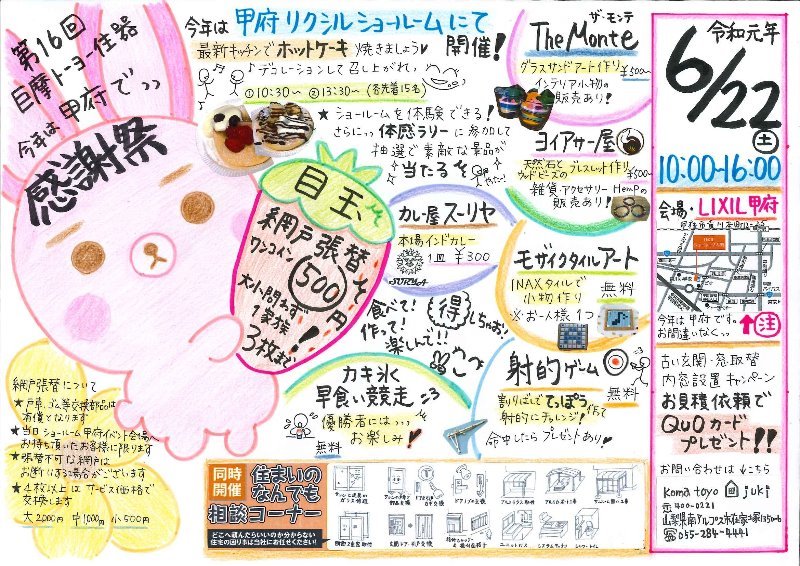 第16回
巨摩トーヨー住器
今年は 甲府で
感謝祭
今年は 甲府リクシルショールームにて
開催!
最新キッチンで ホットケーキ 焼きましょう♡
♪デコレーションして召し上がれ♪
①10:30〜 ②13:30〜 (各先着15名)
★ ショールームを体験できる!
さらに 体感ラリーに参加して
抽選で素敵な景品が
当たるぞ
目玉
網戸張替ぞ
ワンコイン
500円
大小問わず
1家族
3枚まで!
ザ・モンテ
The Monte
グラスサンドアート作り ¥500〜
インテリア小物の
販売あり!
ヨイアサー屋
天然石と
ウッドビーズのブレスレット作り ¥500〜
雑貨・アクセサリー HEMPの
販売あり!
カレー屋スーリヤ
本場インドカレー
1皿 ¥300
SURYA
モザイクタイルアート
INAXタイルで
小物作り
無料
※お一人様1つ
食べて!
作って!
楽しんで!!
得
しちゃお!
カキ氷
早食い競走
優勝者には
お楽しみ♡
無料
射的ゲーム
無料
割りばしで てっぽう 作って
射的にチャレンジ!
命中したらプレゼントあり♡
網戸張替について
★当日ショールーム甲府イベント会場へ
お持ち頂いたお客様に限ります
★張替不可な網戸は
お断りする場合がございます
★4枚以上はサービス価格で
交換します
大2000円 中1000円 小500円
同時開催
住まいの
なんでも
相談コーナー
どこへ頼んだらいいのか分からない
住宅の困り事は当社にお任せください!
令和元年
6/22
土
10:00-16:00
会場・LIXIL甲府
今年は甲府です。
お間違いなく
注
古い玄関・窓取替
内窓設置キャンペーン
お見積依頼で
QUOカード
プレゼント!!
お問い合わせは こちら
Koma toyo juki
〒400-0221
055-284-4441